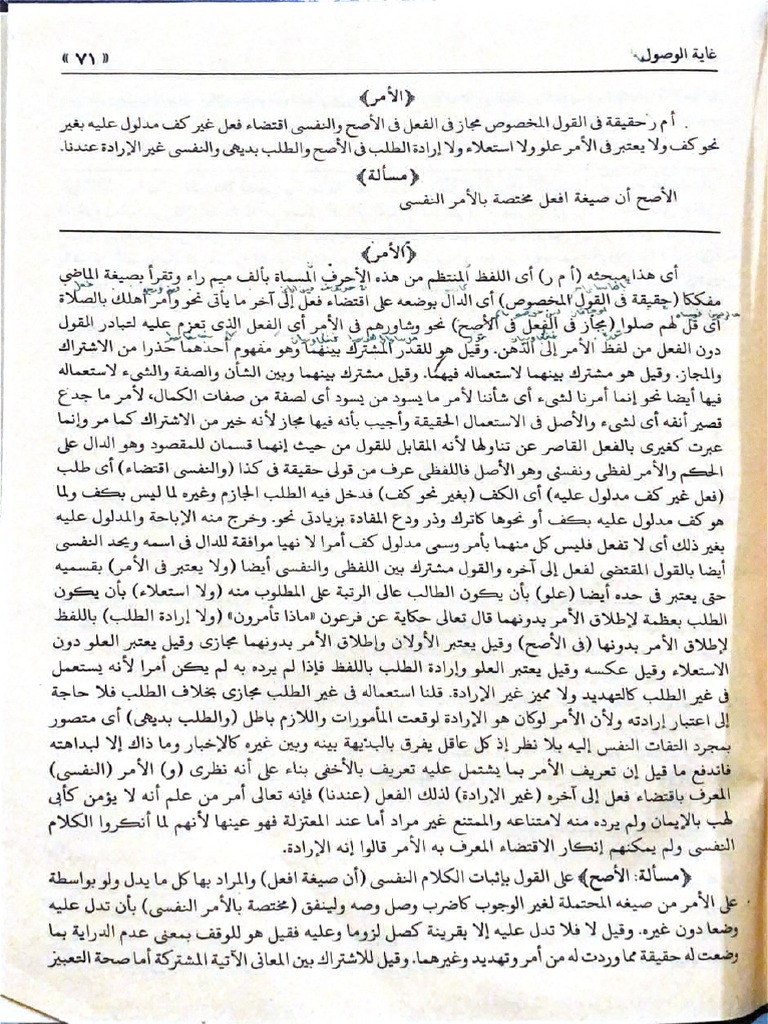 غاية الوصول
« ٧١ »
﴿الأمر﴾
أ م ر حقيقة فى القول المخصوص مجاز فى الفعل فى الأصح والنفسى اقتضاء فعل غير كف مدلول عليه بغير
نحو كف ولا يعتبر فى الأمر علو ولا استعلاء ولا إرادة الطلب فى الأصح والطلب بديهى والنفسى غير الإرادة عندنا.
﴿مسألة﴾
الأصح أن صيغة افعل مختصة بالأمر النفسى
﴿الأمر﴾
أى هذا مبحثه (أ م ر) أى اللفظ المنتظم من هذه الأحرف المسماة بألف ميم راء وتقرأ بصيغة الماضي
مفككا (حقيقة فى القول المخصوص) أى الدال بوضعه على اقتضاء فعل إلى آخر ما يأتى نحو وأمر أهلك بالصلاة
أى قل لهم صلوا (مجاز فى الفعل فى الأصح) نحو وشاورهم فى الأمر أى الفعل الذى تعزم عليه لتبادر القول
دون الفعل من لفظ الأمر إلى الذهن. وقيل هو للقدر المشترك بينهما وهو مفهوم أحدهما حذرا من الاشتراك
والمجاز. وقيل هو مشترك بينهما لاستعماله فيهما. وقيل مشترك بينهما وبين الشأن والصفة والشىء لاستعماله
فيها أيضا نحو إنما أمرنا لشىء أى شأننا لأمر ما يسود من يسود أى لصفة من صفات الكمال، لأمر ما جدع
قصير أنفه أى لشىء والأصل فى الاستعمال الحقيقة وأجيب بأنه فيها مجاز لأنه خير من الاشتراك كما مر وإنما
عبرت كغيرى بالفعل القاصر عن تناولها لأنه المقابل للقول من حيث إنهما قسمان للمقصود وهو الدال على
الحكم والأمر لفظى ونفسى وهو الأصل فاللفظى عرف من قولى حقيقة فى كذا (والنفسى اقتضاء) أى طلب
(فعل غير كف مدلول عليه) أى الكف (بغير نحو كف) فدخل فيه الطلب الجازم وغيره لما ليس بكف ولما
هو كف مدلول عليه بكف أو نحوها كاترك وذر ودع المفادة بزيادتى نحو. وخرج منه الإباحة والمدلول عليه
بغير ذلك أى لا تفعل فليس كل منهما بأمر وسمى مدلول كف أمرا لا نهيا موافقة للدال فى اسمه ويحد النفسى
أيضا بالقول المقتضى لفعل إلى آخره والقول مشترك بين اللفظى والنفسى أيضا (ولا يعتبر فى الأمر) بقسميه
حتى يعتبر فى حده أيضا (علو) بأن يكون الطالب عالى الرتبة على المطلوب منه (ولا استعلاء) بأن يكون
الطلب بعظمة لإطلاق الأمر بدونهما قال تعالى حكاية عن فرعون «ماذا تأمرون» (ولا إرادة الطلب) باللفظ
لإطلاق الأمر بدونها (فى الأصح) وقيل يعتبر الأولان وإطلاق الأمر بدونهما مجازى وقيل يعتبر العلو دون
الاستعلاء وقيل عكسه وقيل يعتبر العلو وإرادة الطلب باللفظ فإذا لم يرده به لم يكن أمرا لأنه يستعمل
فى غير الطلب كالتهديد ولا مميز غير الإرادة. قلنا استعماله فى غير الطلب مجازى بخلاف الطلب فلا حاجة
إلى اعتبار إرادته ولأن الأمر لو كان هو الإرادة لوقعت المأمورات واللازم باطل (والطلب بديهى) أى متصور
بمجرد التفات النفس إليه بلا نظر إذ كل عاقل يفرق بالبديهة بينه وبين غيره كالإخبار وما ذاك إلا لبداهته
فاندفع ما قيل إن تعريف الأمر بما يشتمل عليه تعريف بالأخفى بناء على أنه نظرى (و) الأمر (النفسى)
المعرف باقتضاء فعل إلى آخره (غير الإرادة) لذلك الفعل (عندنا) فإنه تعالى أمر من علم أنه لا يؤمن كأبى
لهب بالإيمان ولم يرده منه لامتناعه والممتنع غير مراد أما عند المعتزلة فهو عينها لأنهم لما أنكروا الكلام
النفسى ولم يمكنهم إنكار الاقتضاء المعرف به الأمر قالوا إنه الإرادة.
﴿مسألة: الأصح﴾ على القول بإثبات الكلام النفسى (أن صيغة افعل) والمراد بها كل ما يدل ولو بواسطة
على الأمر من صيغه المحتملة لغير الوجوب كاضرب وصل وصه ولينفق (مختصة بالأمر النفسى) بأن تدل عليه
وضعا دون غيره. وقيل لا فلا تدل عليه إلا بقرينة كصل لزوما وعليه فقيل هو للوقف بمعنى عدم الدراية بما
وضعت له حقيقة مما وردت له من أمر وتهديد وغيرهما. وقيل للاشتراك بين المعانى الآتية المشتركة أما صحة التعبير